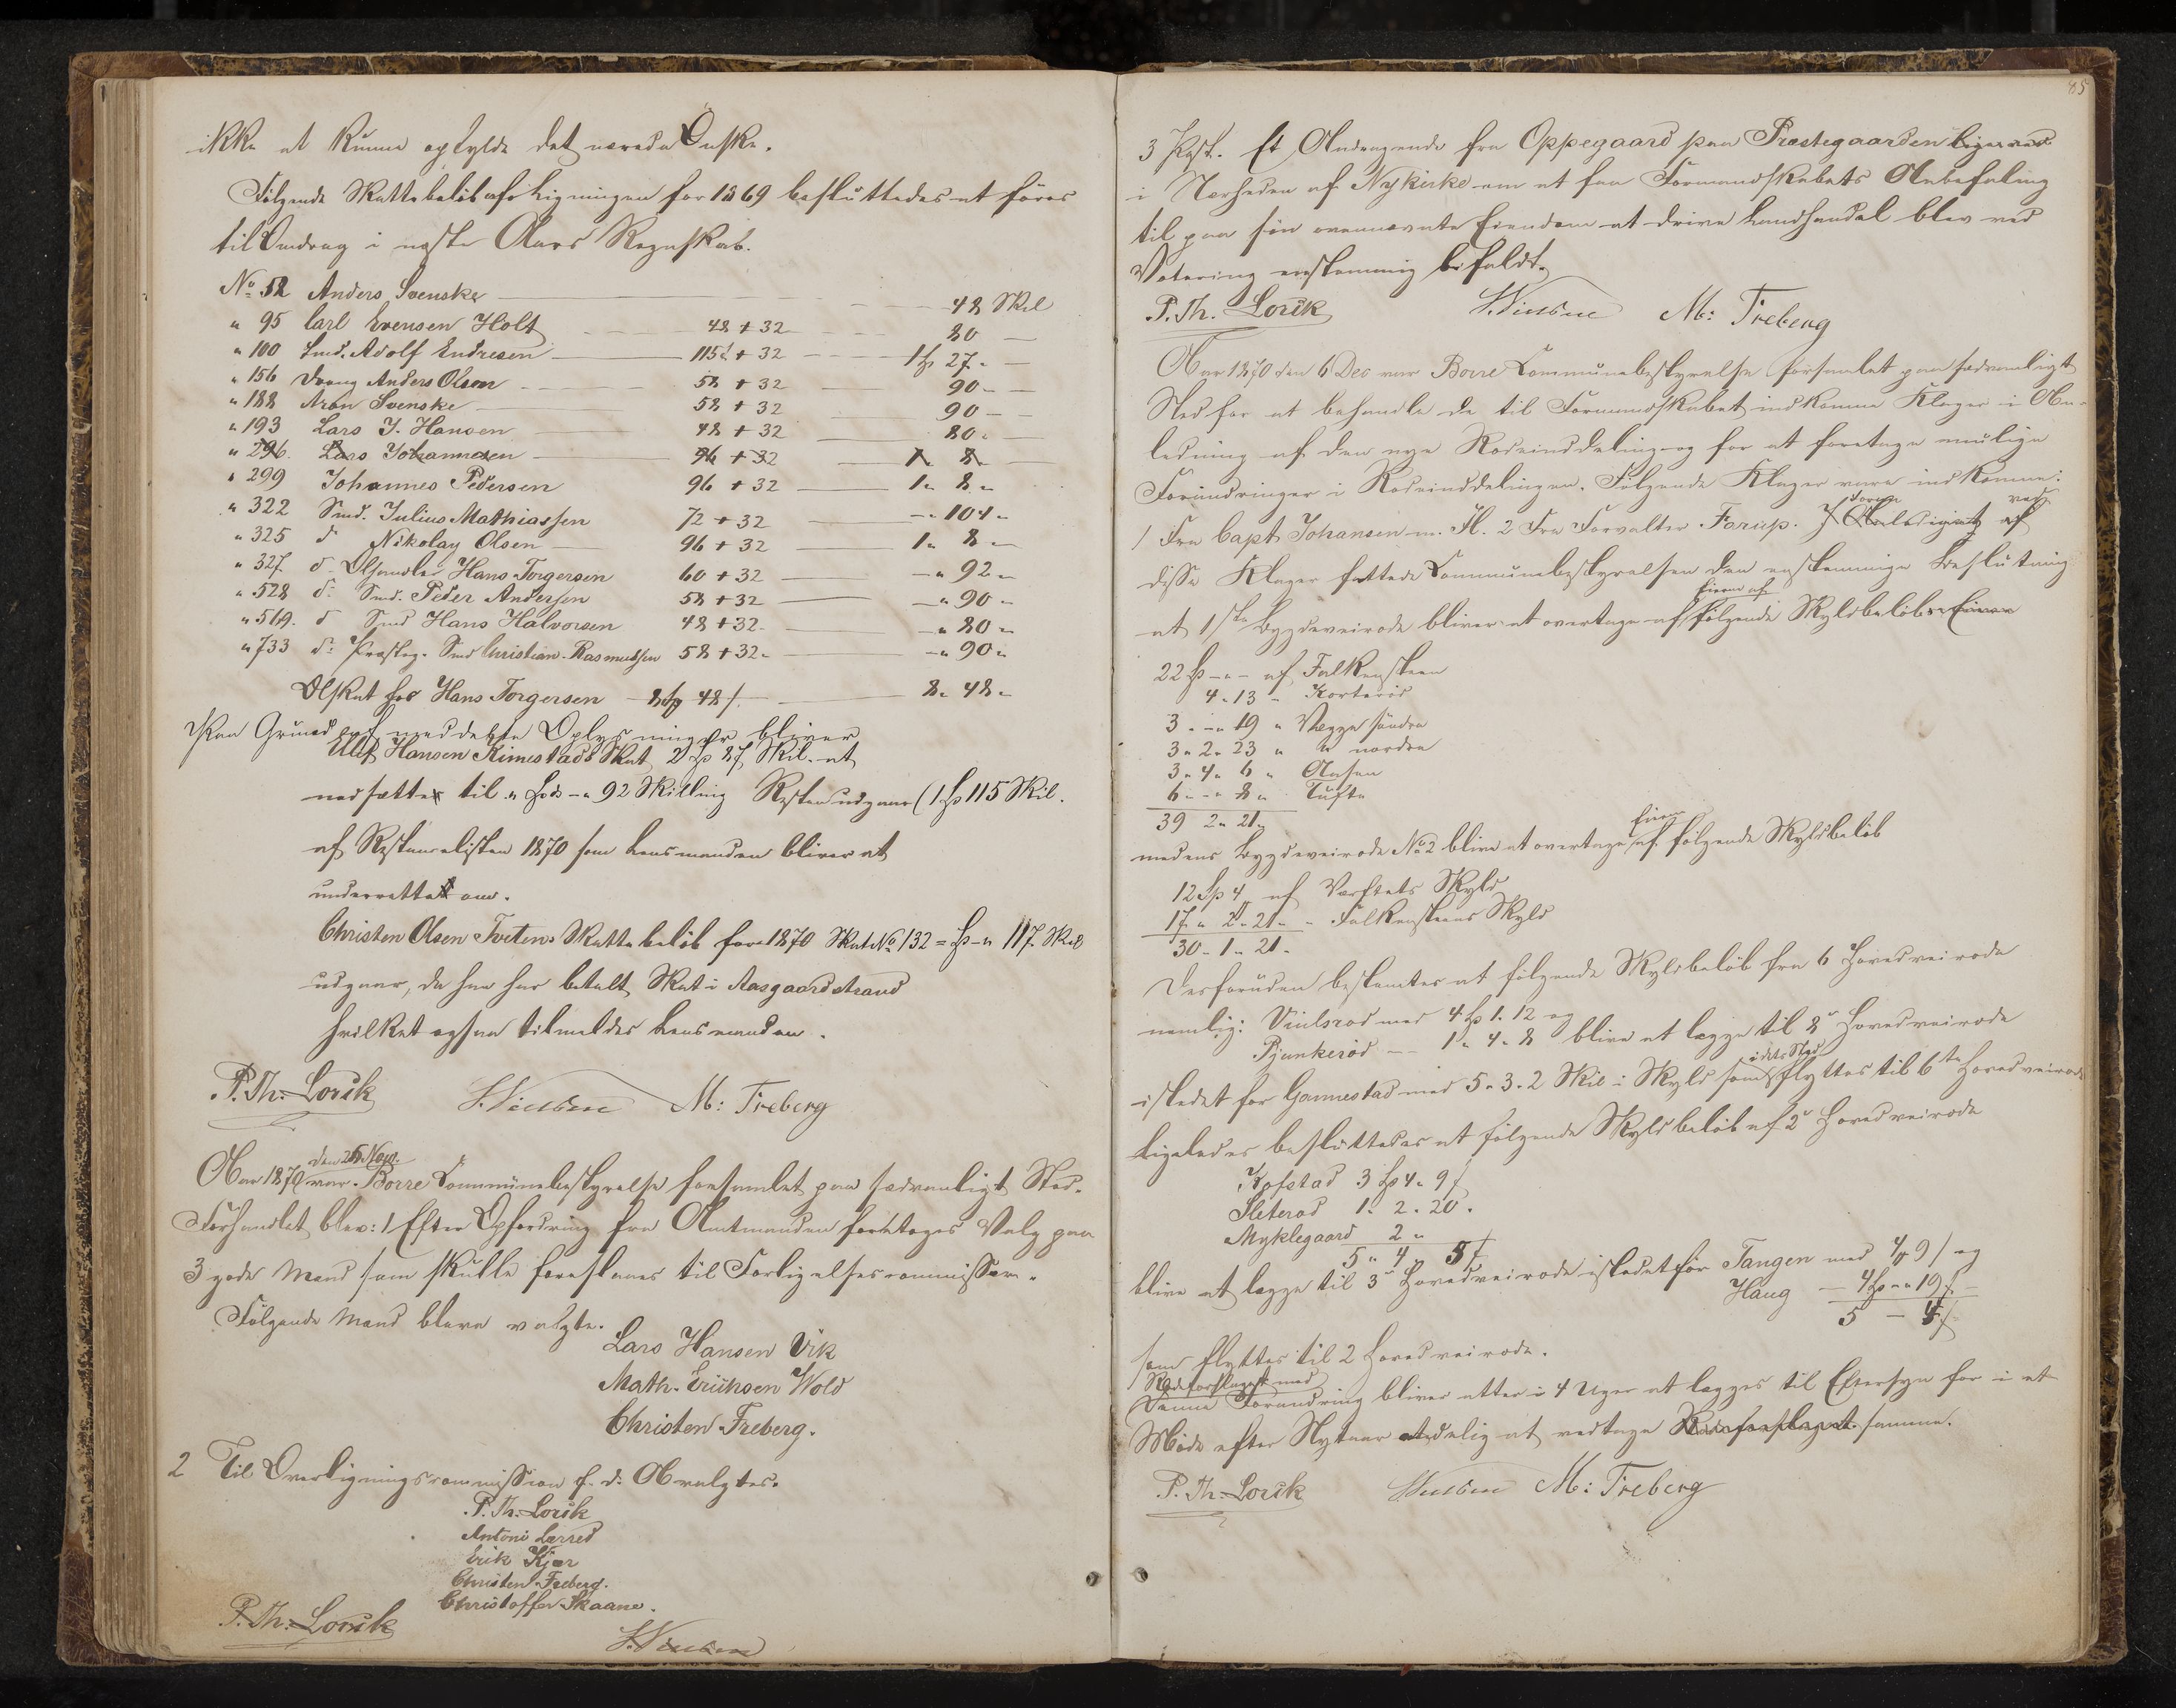 ikke at kunne opfylde det nærede Ønske.
Følgende Skattebeløb efter Ligningen for 1869 besluttedes at føres
til Omdrag i næste Aars Regnskab.
No. 52 Anders Svenske 48 Skil
" 95 Carl Evensen Holt 48 + 32 80
" 100 Smd. Adolf Endresen 115 + 32 1 Sp 27 "
" 156 Dreng Anders Olsen 58 + 32 90 "
" 188 Aron Svenske 58 + 32 90
" 193 Lars J. Hansen 48 + 32 80 "
" 296. Lars Johannesen 96 + 32 1 " 8 "
" 299 Johannes Pedersen 96 + 32 1 " 8 "
" 322 Smd. Julius Mathiassen 72 + 32 " 104 "
" 325 d Nikolay Olsen 96 + 32 1 " 8 "
" 327 d Ølhandler Hans Torgersen 60 + 32 " 92 "
" 528 d: Smd. Peder Andersen 58 + 32 " 90 "
" 569. d Smd Hans Halvorsen 48 + 32 " 80 "
" 733 d: Presteg. Smd Christian Rasmussen 58 + 32 " " 90 "
Ølskat hos Hans Torgersen 8 Sp 48 s 8 " 48 "
Paa Grund af meddelte Oplysninger bliver
Ulf Hansen Kimestads Skat 2 Sp 87 Skil. at
nedsættes til " Spd " 92 Skilling Resten udgaar (1 Sp 115 Skil.
af Restancelisten 1870 som Lensmanden bliver at
underrette om.
Christen Olsen Tveten's Skattebeløb for 1870 Skat No. 132 = Sp " 117 Skil
udgaar, da han har betalt Skat i Aasgaardstrand
hvilket ogsaa tilmeldes Lensmanden.
P. Th. Lorck M: Freberg
Aar 1870 den 25 Nov. var Borre Communebestyrelse forsamlet paa sædvanligt Sted.
Forhandlet blev: 1 Efter Opfordring fra Amtmanden foretoges Valg paa
3 gode Mænd som skulle foreslaaes til Forligelsescommissær.
Følgende Mænd bleve valgte.
Lars Hansen Vik
Math. Erichsen Wold
Christen Freberg.
2 Til Overligningscommission f. d. A valgtes.
P. Th. Lorck
Antoni Lerred
Erik Kjær
Christen Freberg.
Christoffer Skaane.
P. Th. Lorck
3 Post. Et Andragende fra Oppegaard paa Prestegaarden
i Nærheden af Nykirke om at faa Formandskabets Anbefaling
til paa sin ovennævnte Eiendom at drive Landhandel blev ved
Votering enstemmig bifaldt.
P. Th. Lorck M: Freberg
Aar 1870 den 6 Dec var Borre Communebestyrelse forsamlet paa sædvanligt
Sted for at behandle de til Formandskabet indkomne Klager i An-
ledning af den nye Rodeinddeling og for at foretage mulige
Forandringer i Rodeinddelingen. Følgende Klager vare indkomne:
1 Fra Capt Johansen m. Fl. 2 Fra Forvalter Forup. af
disse Klager fattede Communebestyrelsen den enstemmige Beslutning
at 1ste Bygdeveirode bliver at overtage af Eierne af følgende Skyldbeløb
22 Sp " " af Falkensteen
4 " 13 " Korterød
3 " " 19 " Vegge søndre
3 " 2 " 23 " " nordre
3 " 4 " 6 " Aasen
6 " " 8 " Tufte
39 2 " 21 "
medens Bygdeveirode No. 2 blive at overtage af Eierne følgende Skyldbeløb
12 Sp 4 af Værftets Skyld
17 " 2 " 21 " Falkensteens Skyld
30 " 1 " 21 "
Desforuden bestemtes at følgende Skyldbeløb fra 6 Hovedveirode
nemlig: Viulsrød med 4 Sp 1. 12 og
Pjunkerød 1 " 4 " 8 blive at lægge til 8de Hovedveirode
istedet for Gannestad med 5 " 3 " 2 Skil i Skyld som i dets Sted flyttes til 6te Hovedveirode
Ligeledes besluttedes at følgende Skyldbeløb af 2de Hovedveirode
Kofstad 3 Sp 4 " 9 s
Sleterød 1 " 2 " 20.
Myklegaard 2 "
5 " 4 " 5 s
blive at lægge til 3de Hovedveirode istedet for Tangen med 4 9 s og
Haug 4 Sp " 19 s
5 4 s
som flyttes til 2 Hovedveirode.
Rodeforslaget med
denne Forandring bliver atter i 4 Uger at lægges til Eftersyn for i et
Møde efter Nytaar endelig at vedtage Rodeforslaget samme.
P. Th. Lorck M: Freberg